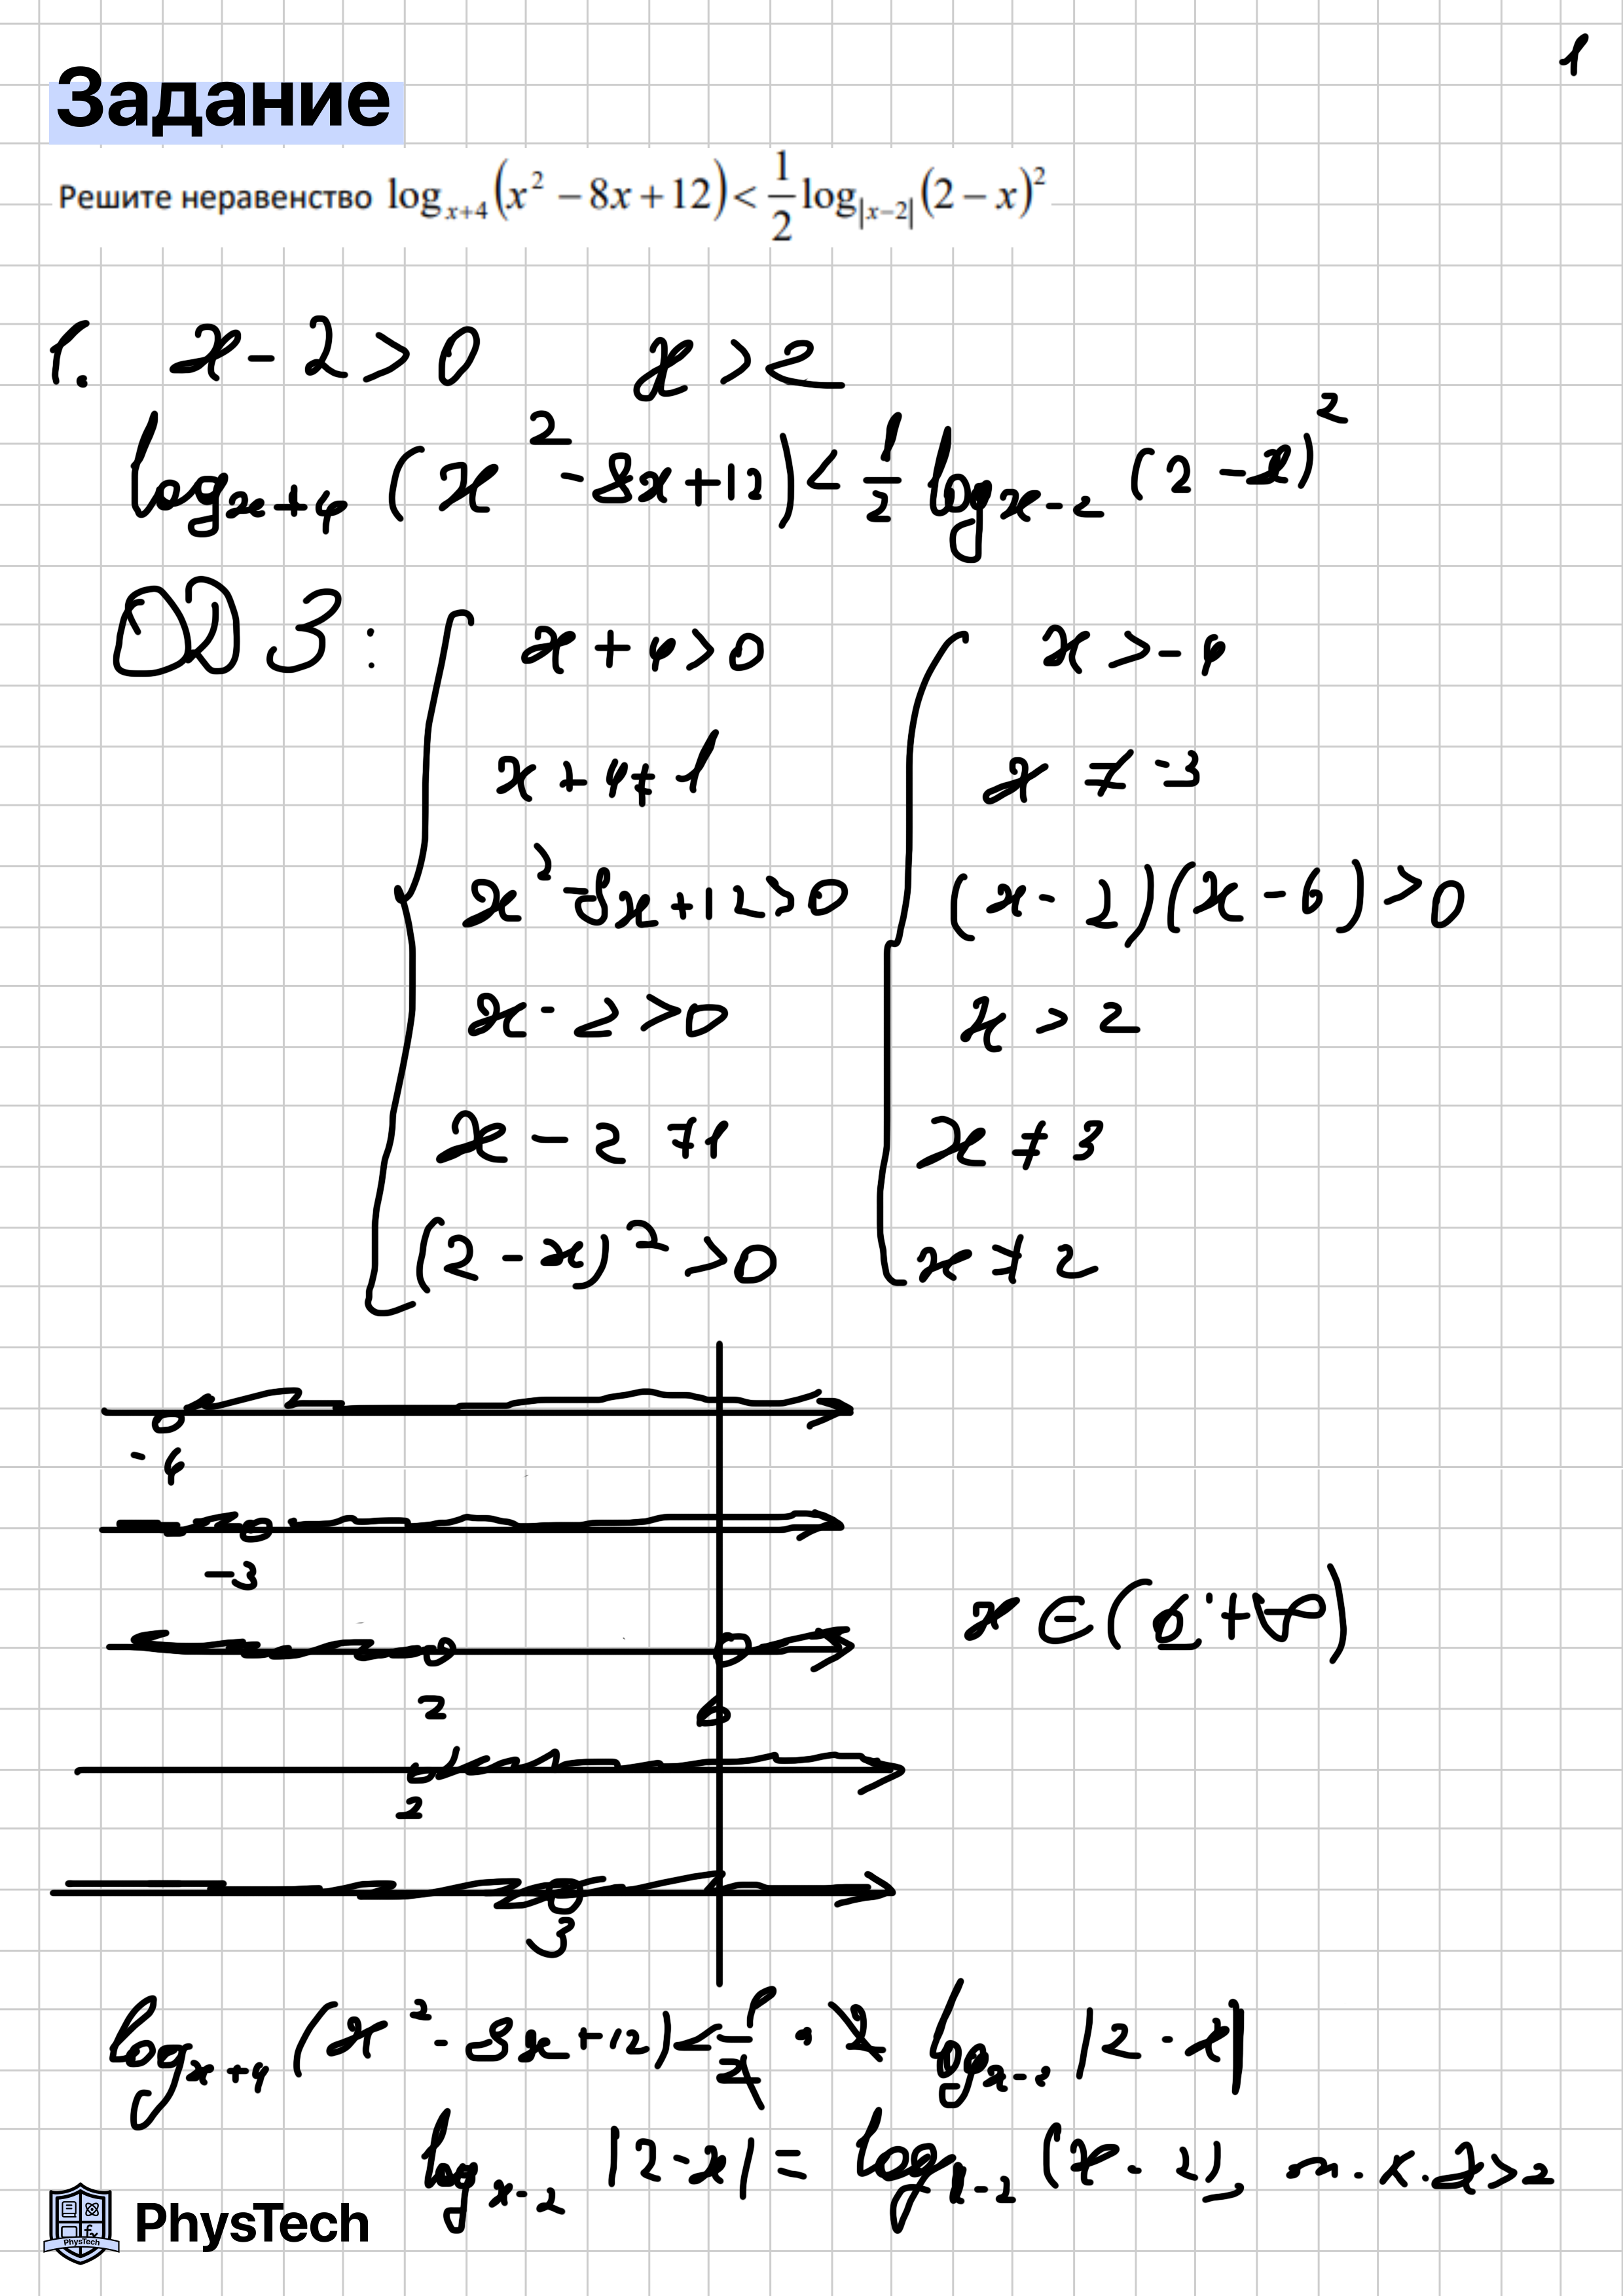 1
Задание
Решите неравенство log_{x+4}(x² − 8x + 12) < 1/2 log_{|x−2|}(2 − x)²
1. x - 2 > 0 x > 2
log_{x+4} (x² - 8x + 12) < 1/2 log_{x-2} (2 - x)²
ОДЗ: { x + 4 > 0 { x > -4
x + 4 ≠ 1 x ≠ -3
x² - 8x + 12 > 0 (x - 2)(x - 6) > 0
x - 2 > 0 x > 2
x - 2 ≠ 1 x ≠ 3
(2 - x)² > 0 x ≠ 2
-4
-3
x ∈ (6; +∞)
2 6
2
3
log_{x+4} (x² - 8x + 12) < 1/2 · 2 log_{x-2} |2 - x|
log_{x-2} |2 - x| = log_{x-2} (x - 2), т.к. x > 2
PhysTech
PhysTech